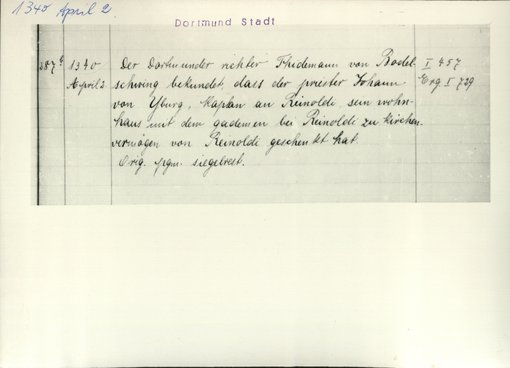 1340 April 2
Dortmund Stadt
287a 1340 Der Dortmunder richter Thidemann von Bodel- I 457
April 2 schwing bekundet, dass der priester Johann Erg I 729
von Yburg, kaplan an Reinoldi, sein wohn-
haus mit dem gademen bei Reinoldi zu kirchen-
vermögen von Reinoldi geschenkt hat.
Orig. pgm. siegelrest.